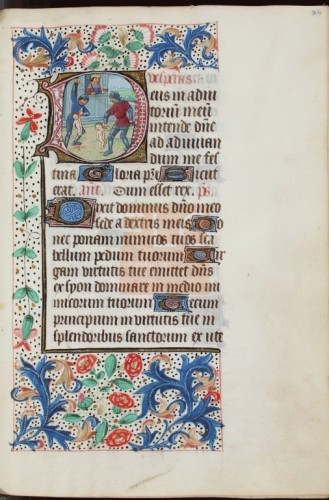 Deus in adiu
toriū meū
intende dñe
ad adiuuan
dum me fes
tina Gloria pri Sicut
erat. añt. Dum esset rex. ps
Dixit dominus dño meo
sede a dextris meis Do
nec ponam inimicos tuos sca
bellum pedum tuorum Uir
gam virtutis tue emittet dñs
ex syon dominare in medio ini
micorum tuorum Tecum
principium in virtutis tue in
splendoribus sanctorum ex ute